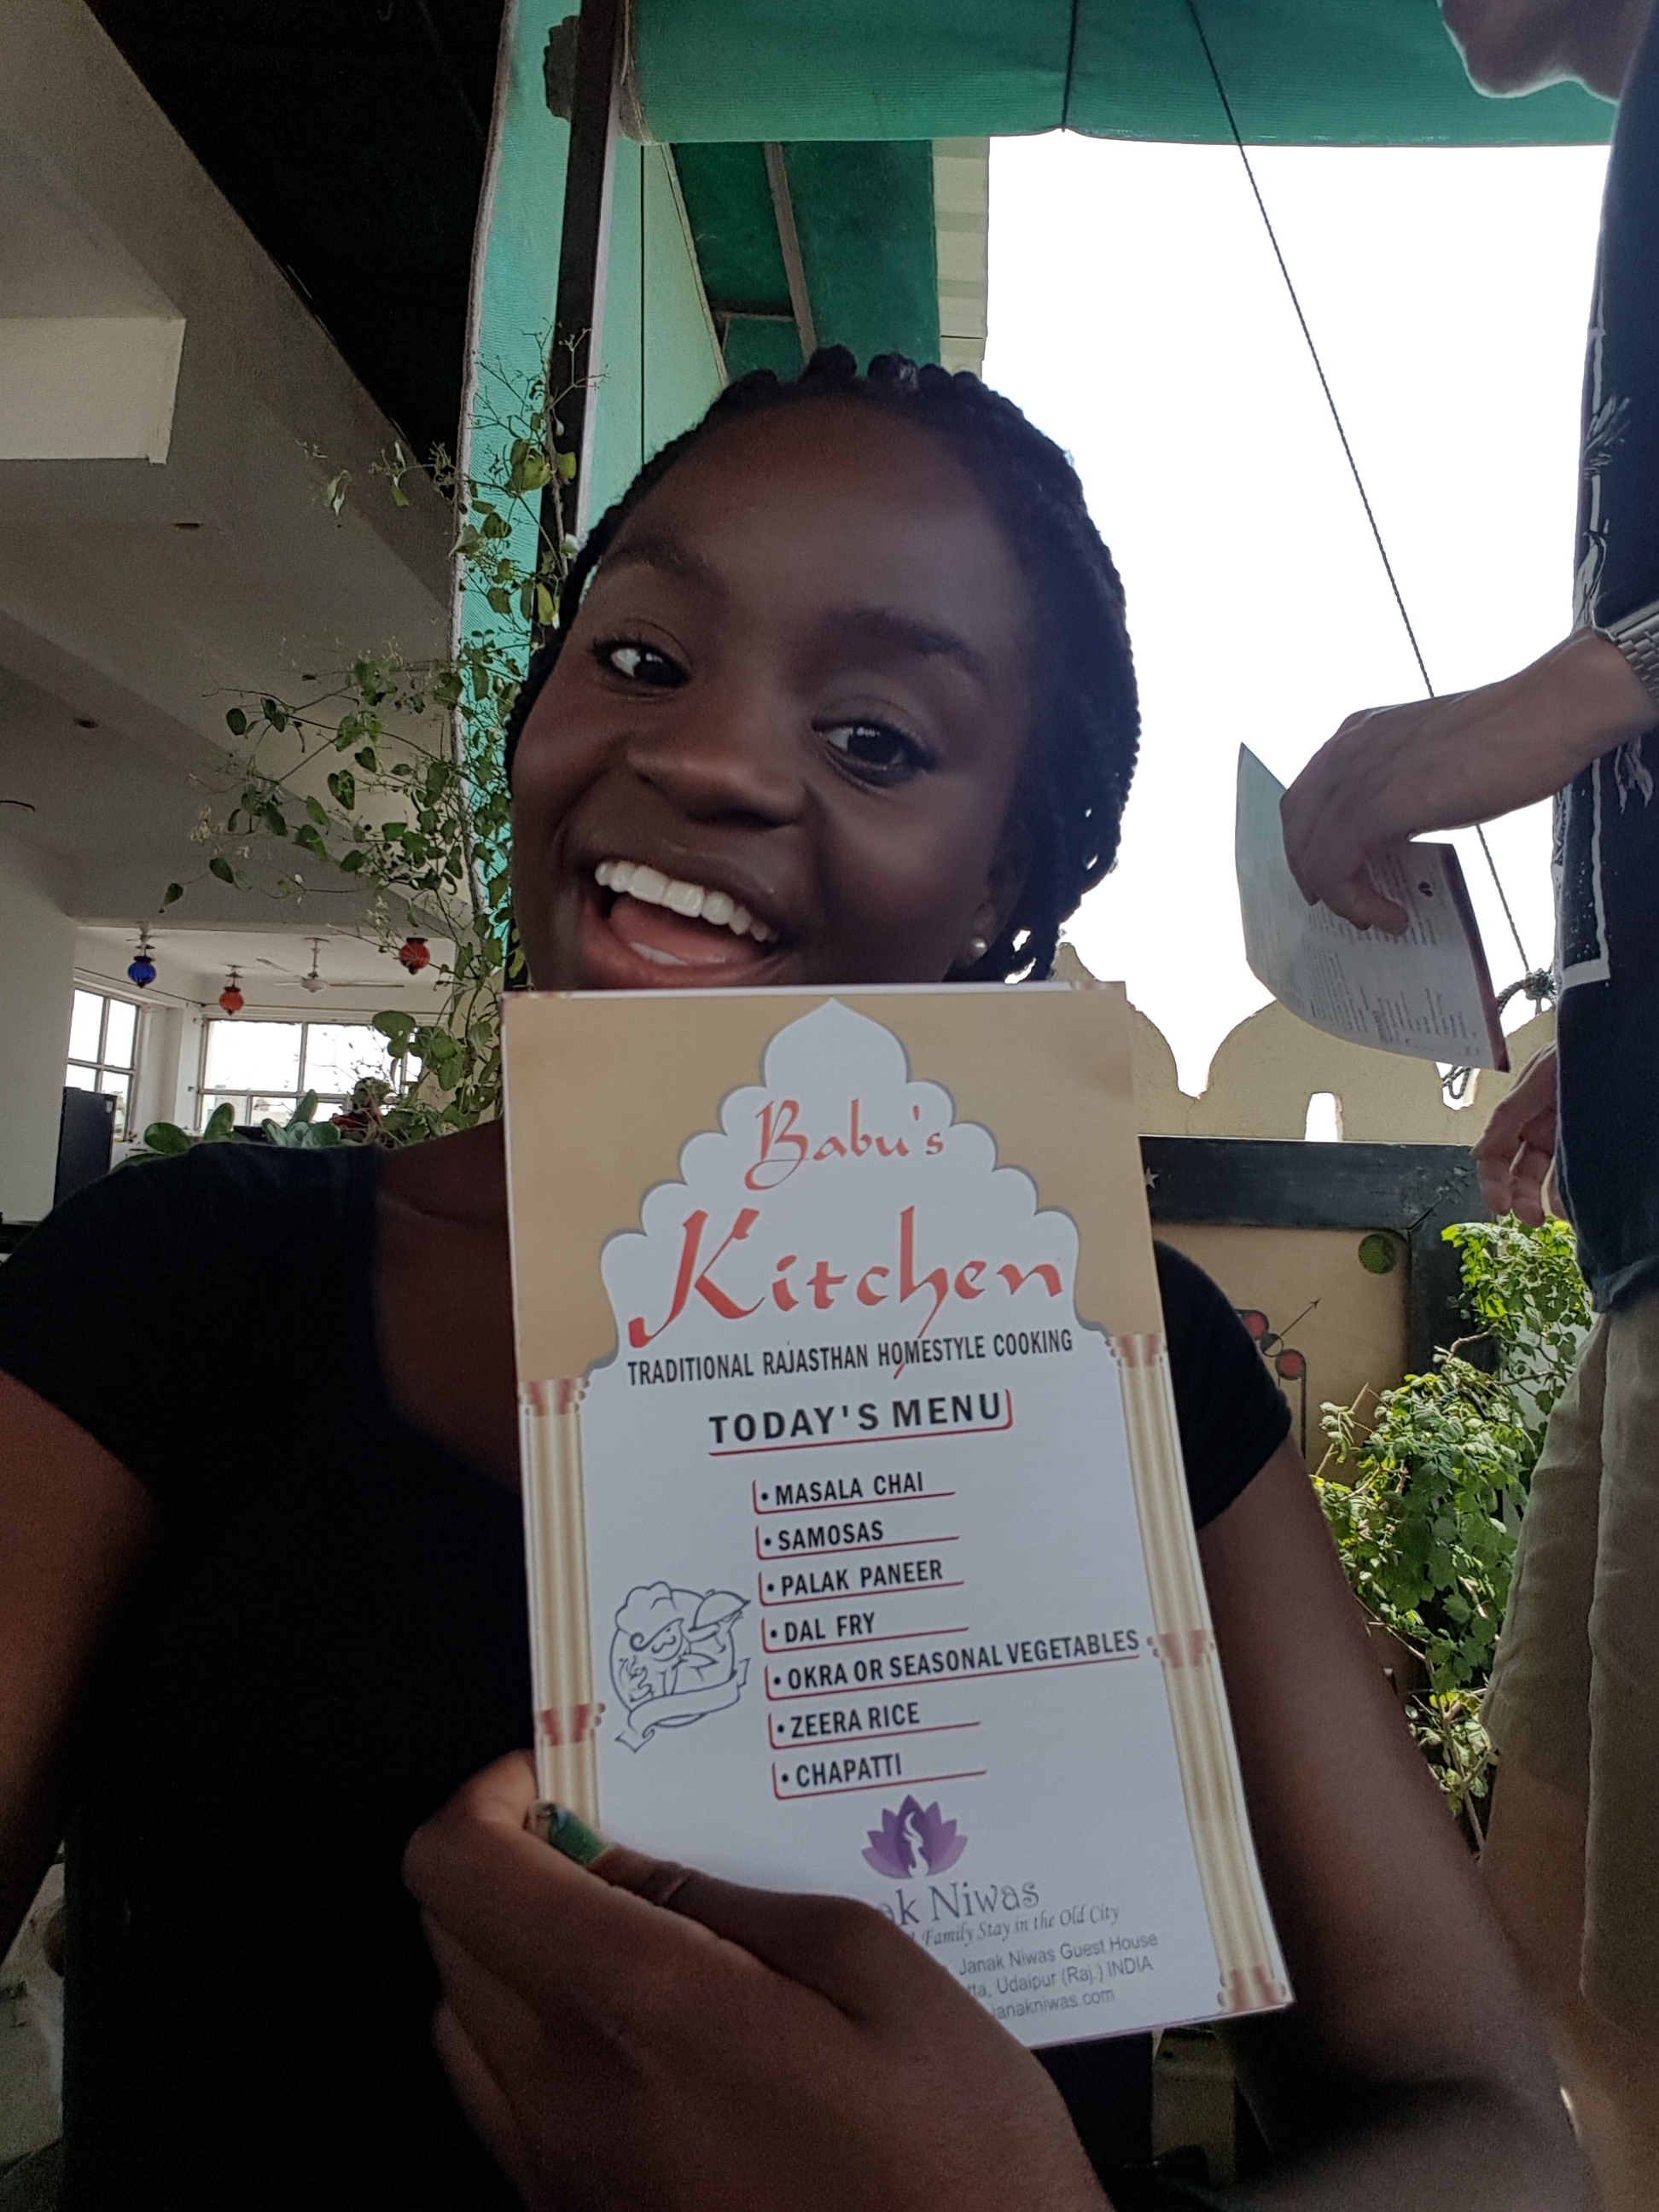 Babu's
Kitchen
TRADITIONAL RAJASTHAN HOMESTYLE COOKING
TODAY'S MENU
• MASALA CHAI
• SAMOSAS
• PALAK PANEER
• DAL FRY
• OKRA OR SEASONAL VEGETABLES
• ZEERA RICE
• CHAPATTI
Niwas
Family Stay in the Old City
Janak Niwas Guest House
Udaipur (Raj.) INDIA
janakniwas.com